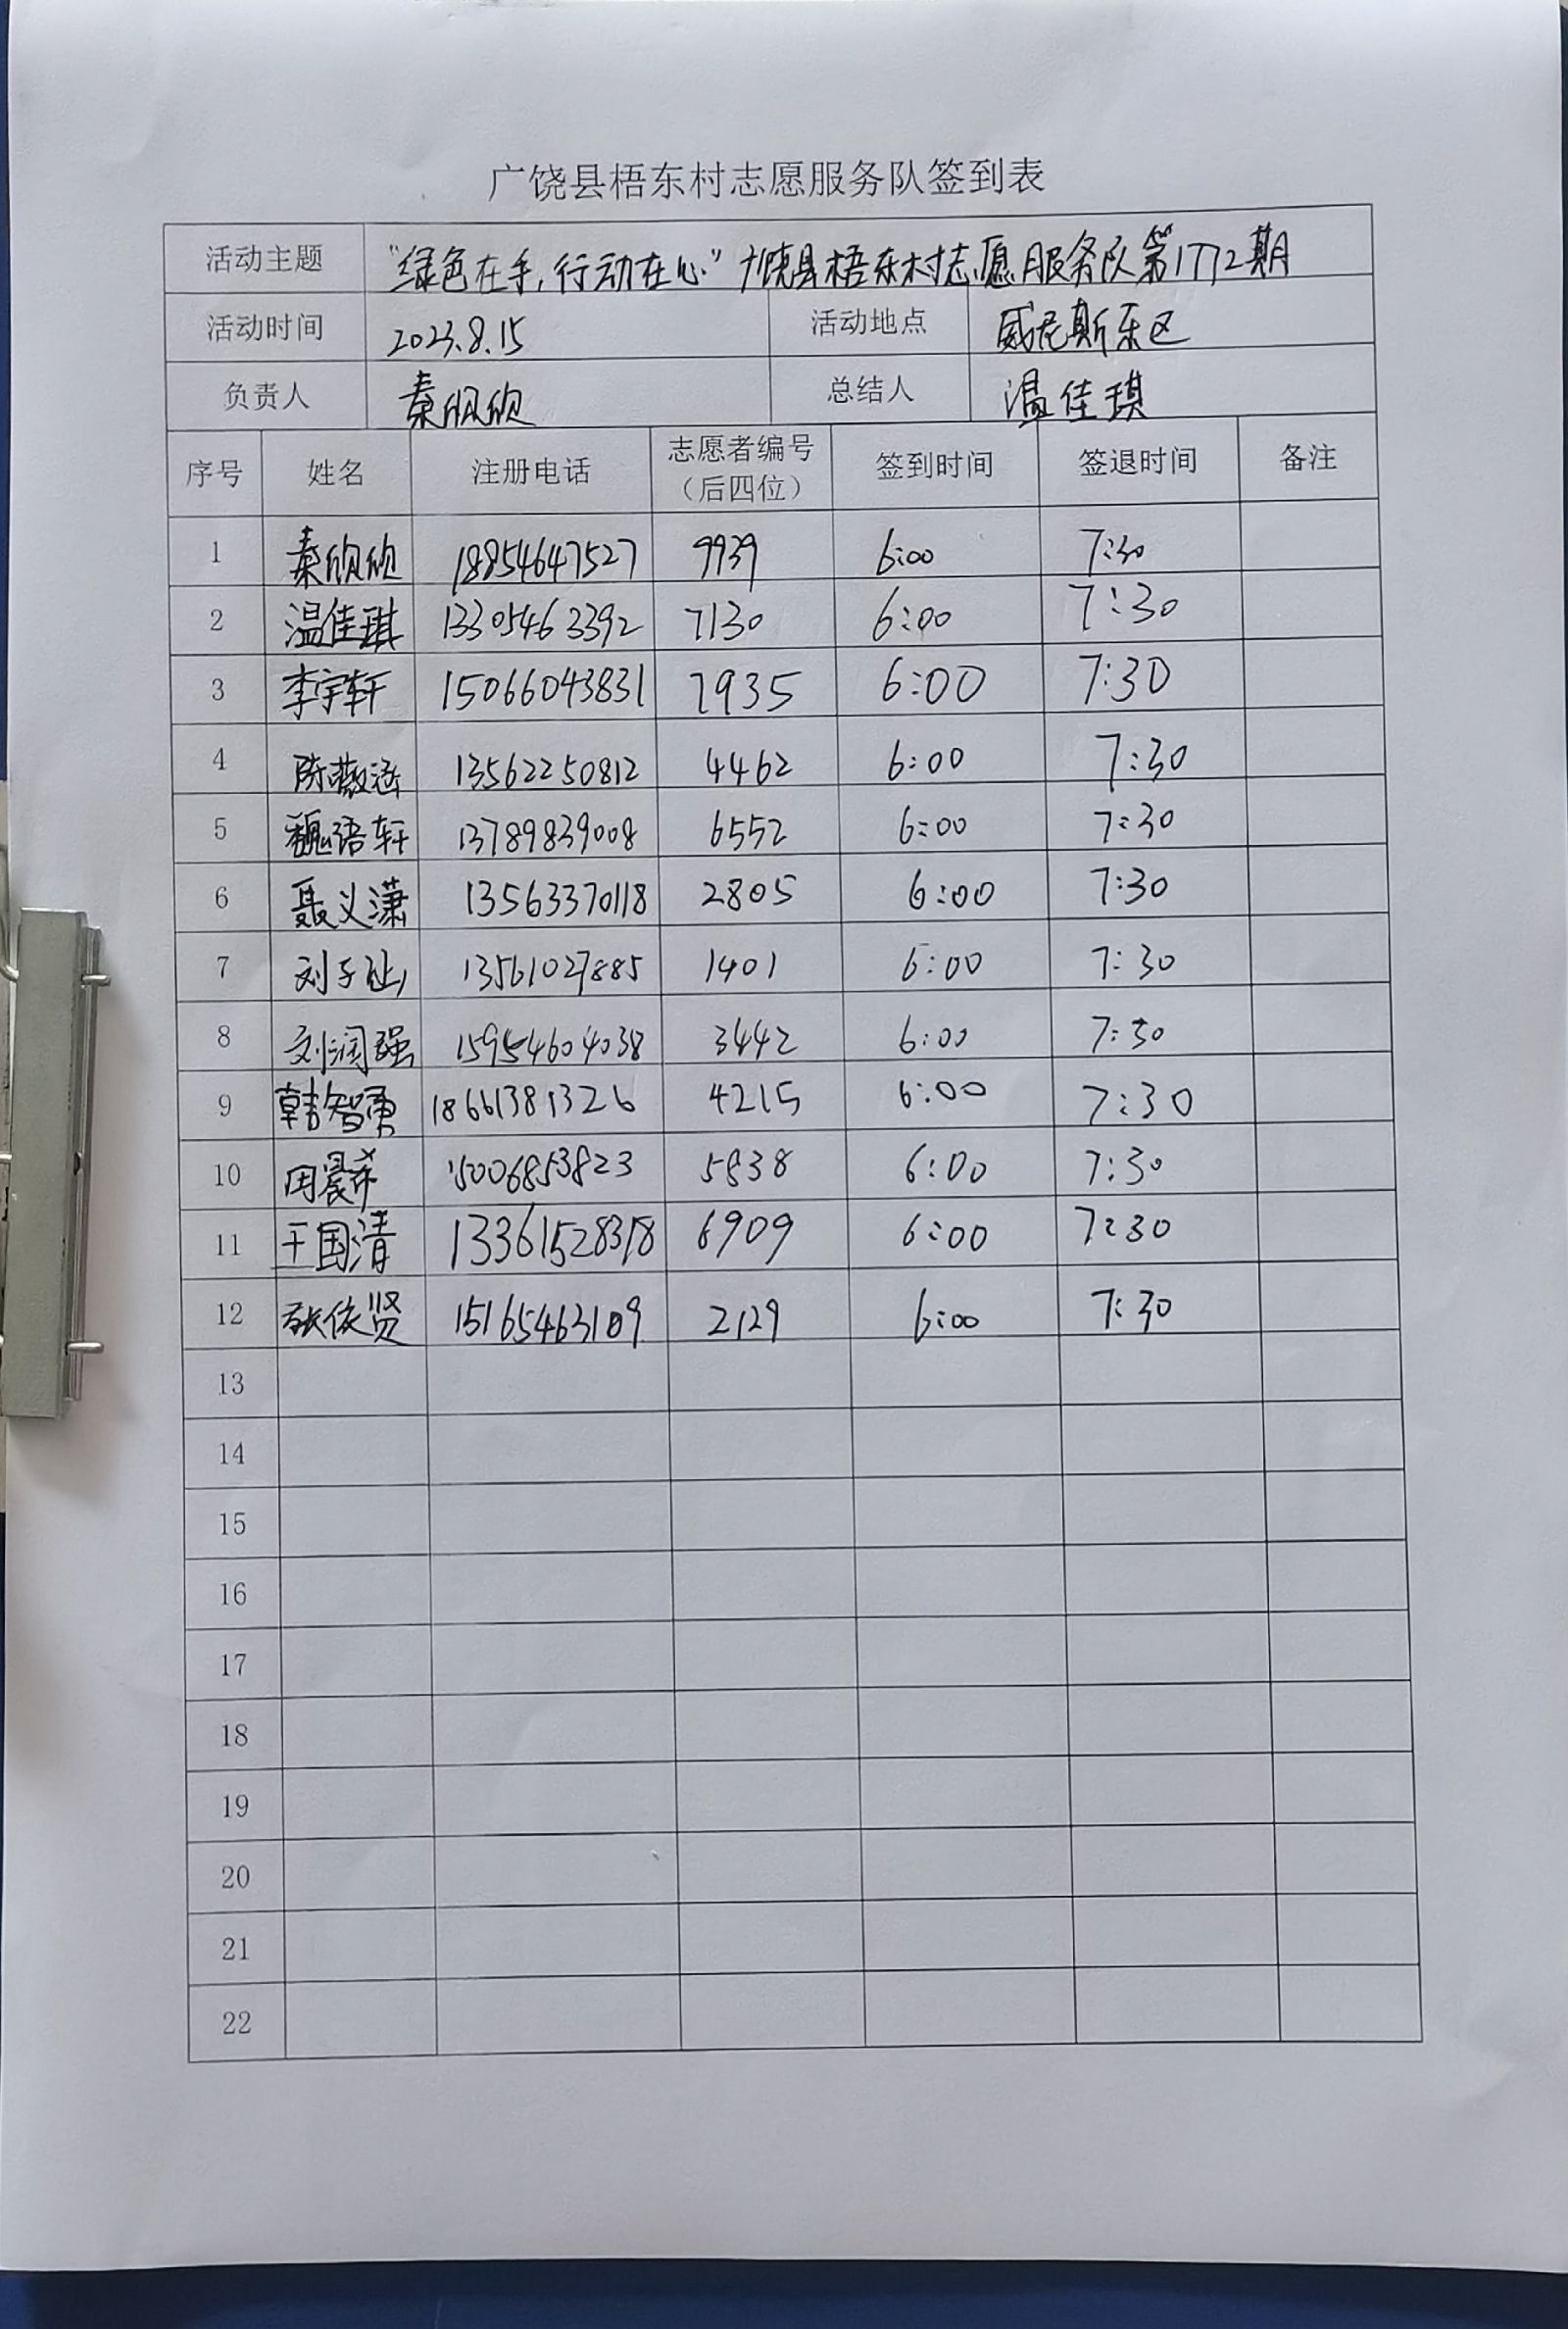 广饶县梧东村志愿服务队签到表
活动主题 “绿色在手,行动在心”广饶县梧东村志愿服务队第1772期
活动时间 2023.8.15 活动地点 威尼斯东区
负责人 秦欣欣 总结人 温佳琪
序号 姓名 注册电话 志愿者编号（后四位） 签到时间 签退时间 备注
1 秦欣欣 18854647527 9939 6:00 7:30
2 温佳琪 13305463392 7130 6:00 7:30
3 李宇轩 15066043831 7935 6:00 7:30
4 陈薇涵 13562250812 4462 6:00 7:30
5 魏语轩 13789839008 6552 6:00 7:30
6 聂义潇 13563370118 2805 6:00 7:30
7 刘子 13561027885 1401 6:00 7:30
8 刘润强 15954604038 3442 6:00 7:30
9 韩智勇 18661381326 4215 6:00 7:30
10 周晨希 15006853823 5838 6:00 7:30
11 王国清 13361528318 6909 6:00 7:30
12 张依贤 15165463109 2129 6:00 7:30
13
14
15
16
17
18
19
20
21
22